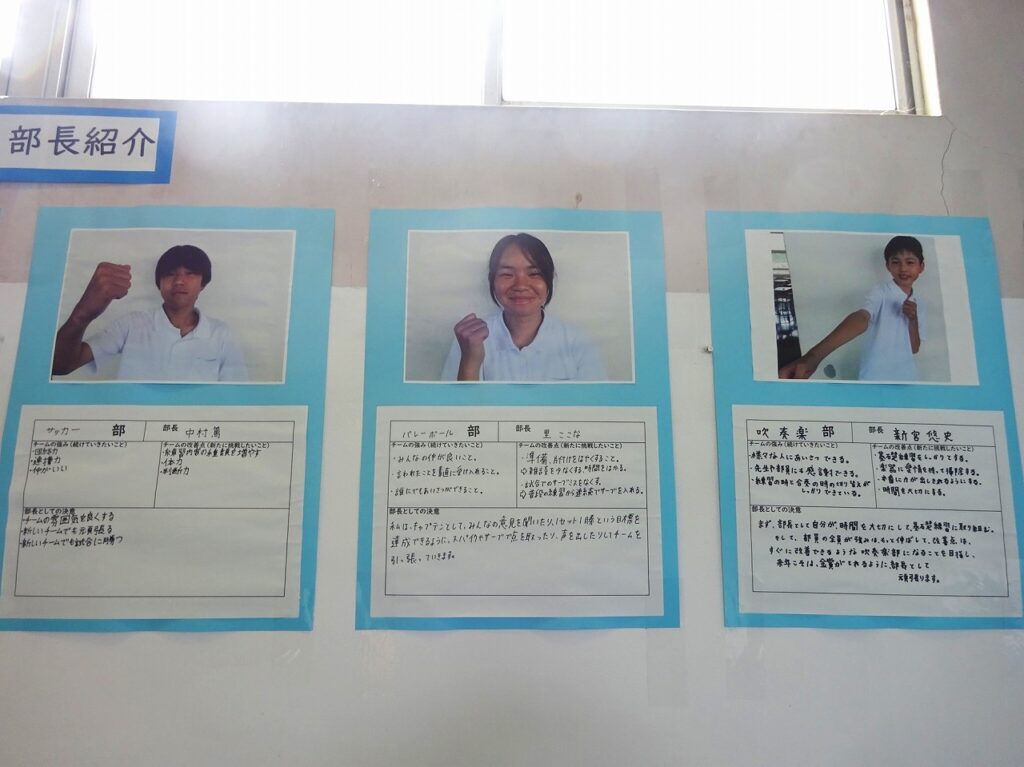 部長紹介
サッカー 部
部長 中村 篤
チームの強み(続けていきたいこと)
・団結力
・連携力
・仲がいい
チームの改善点(新たに挑戦したいこと)
・練習内容の
・体力
・判断力
部長としての決意
・チームの雰囲気を良くする
・新しいチームでも元気張る
・新しいチームでも試合に勝つ
バレーボール 部
部長 里 ここな
チームの強み(続けていきたいこと)
・みんなの仲が良いこと。
・言われたことを素直に受け入れること。
・誰にでもあいさつができること。
チームの改善点(新たに挑戦したいこと)
・準備、片付けをはやくすること。
⇒雑談を少なくする。時間をはかる。
・試合でのサーブミスをなくす。
⇒普段の練習から連続でサーブを入れる。
部長としての決意
私は、キャプテンとして、みんなの意見を聞いたり、1セット1勝という目標を
達成できるように、スパイクやサーブで点を取ったり、声を出したりしてチームを
引っ張っていきます。
吹奏楽 部
部長 新宮 悠史
チームの強み(続けていきたいこと)
・様々な人にあいさつできる。
・先生や部員にも感謝できる。
・練習の時と合奏の時の切り替えが
しっかりできている。
チームの改善点(新たに挑戦したいこと)
・基礎練習をしっかりとする。
・楽器に愛情を持って掃除する。
・本番に力が出しきれるようにする。
・時間を大切にする。
部長としての決意
まず、部長として自分が、時間を大切にして、基礎練習に取り組む。
そして、部員の全員が強みは、もっと伸ばして、改善点は、
すぐに改善できるような吹奏楽部になることを目指し、
来年こそは、金賞がとれるように、部長として
頑張ります。